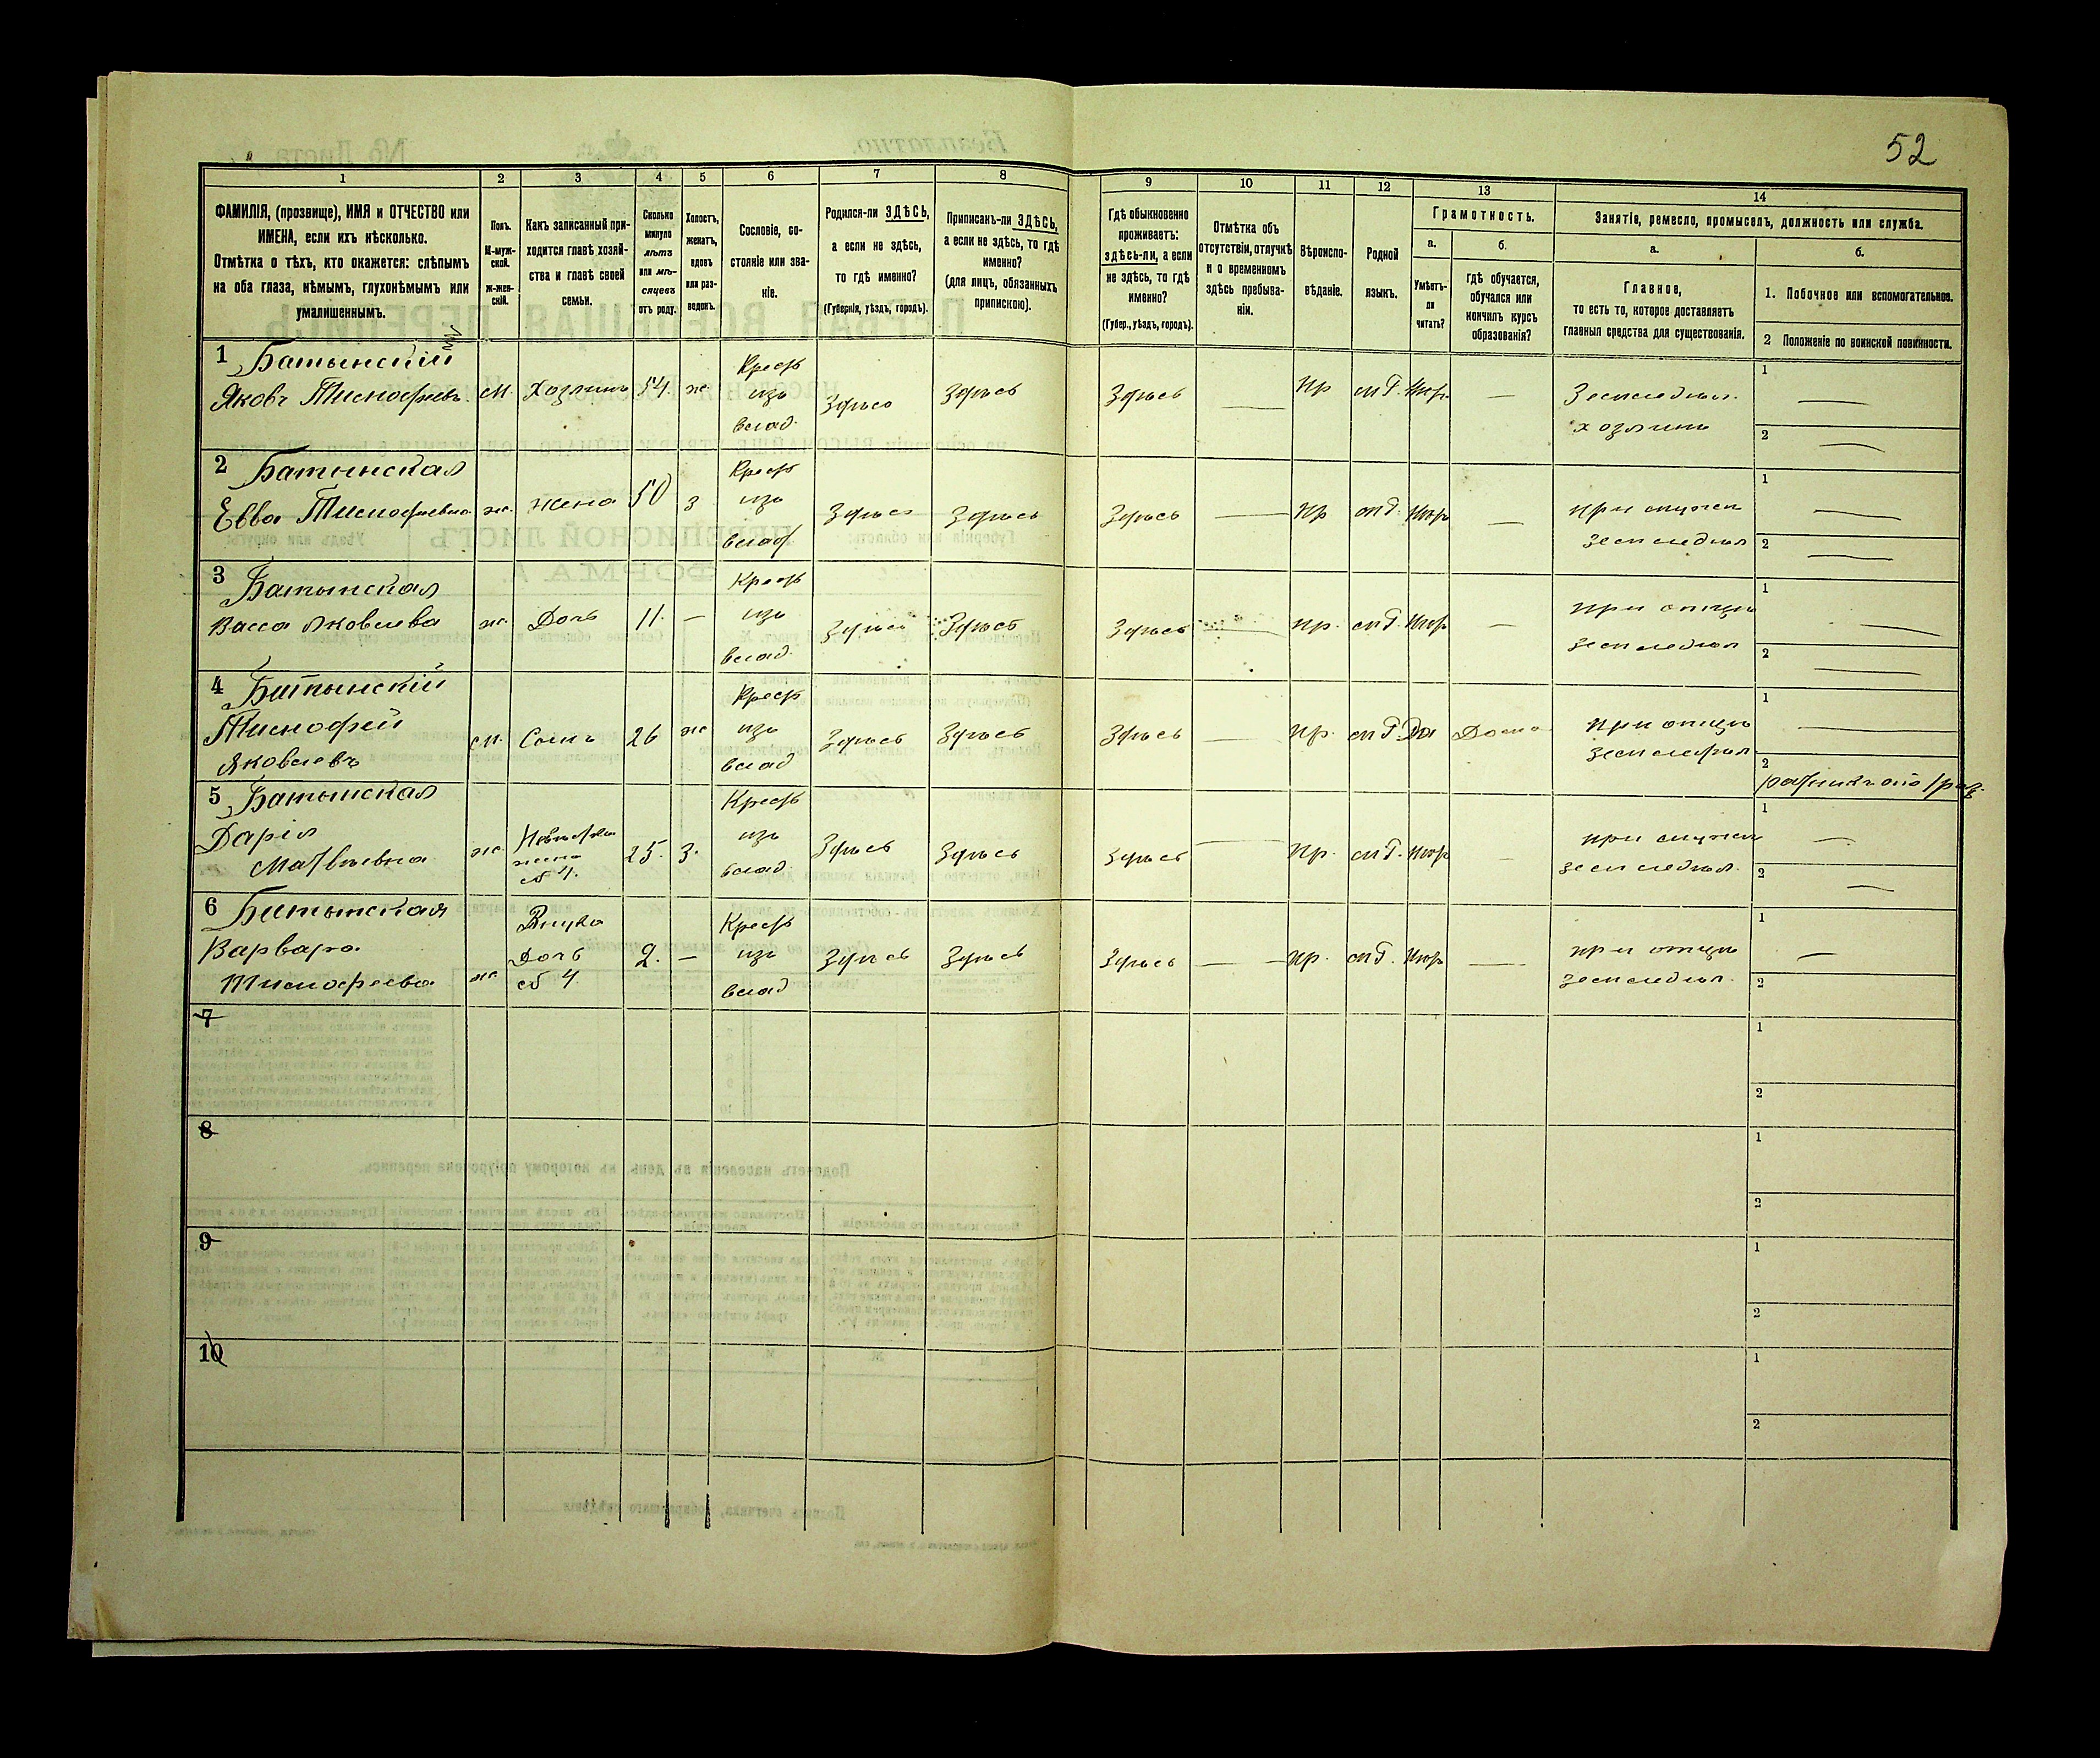 52
1 2 3 4 5 6 7 8 9 10 11 12 13 14
ФАМИЛІЯ, (прозвище), ИМЯ и ОТЧЕСТВО или
ИМЕНА, если ихъ нѣсколько.
Отмѣтка о тѣхъ, кто окажется: слѣпымъ
на оба глаза, нѣмымъ, глухонѣмымъ или
умалишеннымъ.
Полъ.
М-муж-
ской.
ж-жен-
скій.
Какъ записанный при-
ходится главѣ хозяй-
ства и главѣ своей
семьи.
Сколько
минуло
лѣтъ
или мѣ-
сяцевъ
отъ роду.
Холостъ,
женатъ,
вдовъ
или раз-
веденъ.
Сословіе, со-
стояніе или зва-
ніе.
Родился-ли ЗДѢСЬ,
а если не здѣсь,
то гдѣ именно?
(Губернія, уѣздъ, городъ).
Приписанъ-ли ЗДѢСЬ,
а если не здѣсь, то гдѣ
именно?
(для лицъ, обязанныхъ
припискою).
Гдѣ обыкновенно
проживаетъ:
здѣсь-ли, а если
не здѣсь, то гдѣ
именно?
(Губер., уѣздъ, городъ).
Отмѣтка объ
отсутствіи, отлучкѣ
и о временномъ
здѣсь пребыва-
ніи.
Вѣроиспо-
вѣданіе.
Родной
языкъ.
Грамотность.
а.
Умѣетъ-
ли
читать?
б.
гдѣ обучается,
обучался или
кончилъ курсъ
образованія?
Занятіе, ремесло, промыселъ, должность или служба.
а.
Главное,
то есть то, которое доставляетъ
главныя средства для существованія.
б.
1. Побочное или вспомогательное.
2 Положеніе по воинской повинности.
1 Батынскій
Яковъ Тимофеевъ. м. Хозяинъ 54. ж. Крест изъ влад. Здѣсь Здѣсь Здѣсь — пр м Нѣтъ —
Земледѣл.
хозяинъ
1 —
2 —
2 Батынская
Евва Тимофеевна ж. жена 50 з Крест изъ влад Здѣсь Здѣсь Здѣсь — пр Нѣтъ —
при мужѣ
земледѣл
1 —
2 —
3 Батынская
Васса Яковлева ж. Дочь 11. — Крест изъ влад. Здѣсь Здѣсь Здѣсь — пр. Нѣтъ —
при отцѣ
земледѣл
1 —
2 —
4 Батынскій
Тимофей
Яковлевъ м. Сынъ 26 ж Крест изъ влад Здѣсь Здѣсь Здѣсь — пр. Да Дома
при отцѣ
земледѣл
1 —
2
5 Батынская
Дарія
Матвѣевна ж. Невѣстка
жена
№ 4. 25. з. Крест изъ влад Здѣсь Здѣсь Здѣсь — пр. Нѣтъ —
при мужѣ
земледѣл.
1 —
2 —
6 Батынская
Варвара
Тимофеева ж. Внука
Дочь
№ 4. 2. — Крест изъ влад Здѣсь Здѣсь Здѣсь — пр. Нѣтъ —
при отцѣ
земледѣл.
1 —
2
7
1
2
8
1
2
9
1
2
10
1
2